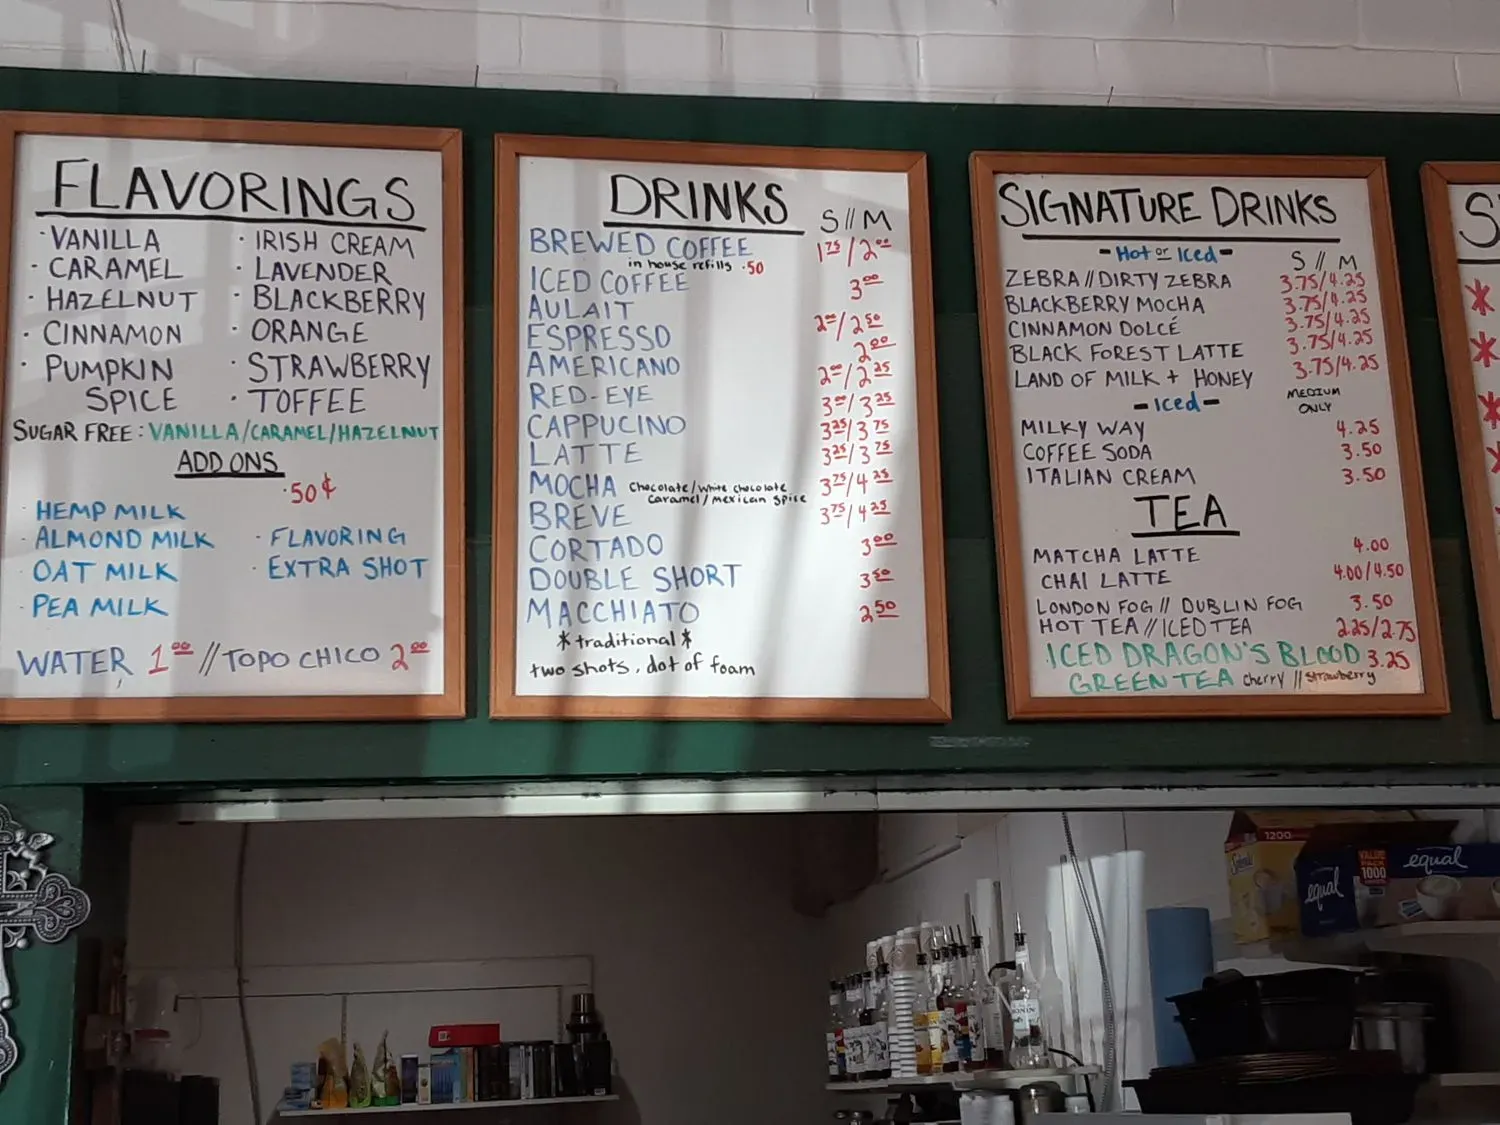 FLAVORINGS
· VANILLA
· CARAMEL
· HAZELNUT
· CINNAMON
· PUMPKIN
SPICE
· IRISH CREAM
· LAVENDER
· BLACKBERRY
· ORANGE
· STRAWBERRY
· TOFFEE
SUGAR FREE: VANILLA/CARAMEL/HAZELNUT
ADD ONS
·50¢
· HEMP MILK
· ALMOND MILK
· OAT MILK
· PEA MILK
· FLAVORING
· EXTRA SHOT
WATER 1.00 // TOPO CHICO 2.00
DRINKS S // M
BREWED COFFEE 1.75/2.00
in house refills .50
ICED COFFEE 3.00
AULAIT 2.00/2.50
ESPRESSO 2.00
AMERICANO 2.00/2.25
RED-EYE 3.00/3.25
CAPPUCINO 3.25/3.75
LATTE 3.25/3.75
MOCHA chocolate/white chocolate 3.75/4.25
caramel/mexican spice
BREVE 3.75/4.25
CORTADO 3.00
DOUBLE SHORT 3.50
MACCHIATO 2.50
*traditional*
two shots, dot of foam
SIGNATURE DRINKS
- Hot or Iced - S // M
ZEBRA // DIRTY ZEBRA 3.75/4.25
BLACKBERRY MOCHA 3.75/4.25
CINNAMON DOLCÉ 3.75/4.25
BLACK FOREST LATTE 3.75/4.25
LAND OF MILK + HONEY 3.75/4.25
- Iced - MEDIUM
ONLY
MILKY WAY 4.25
COFFEE SODA 3.50
ITALIAN CREAM 3.50
TEA
MATCHA LATTE 4.00
CHAI LATTE 4.00/4.50
LONDON FOG // DUBLIN FOG 3.50
HOT TEA // ICED TEA 2.25/2.75
ICED DRAGON'S BLOOD 3.25
GREEN TEA cherry // strawberry
S
*
*
*
*
1200
Splenda
equal
VALUE
PACK
1000
equal
MONIN